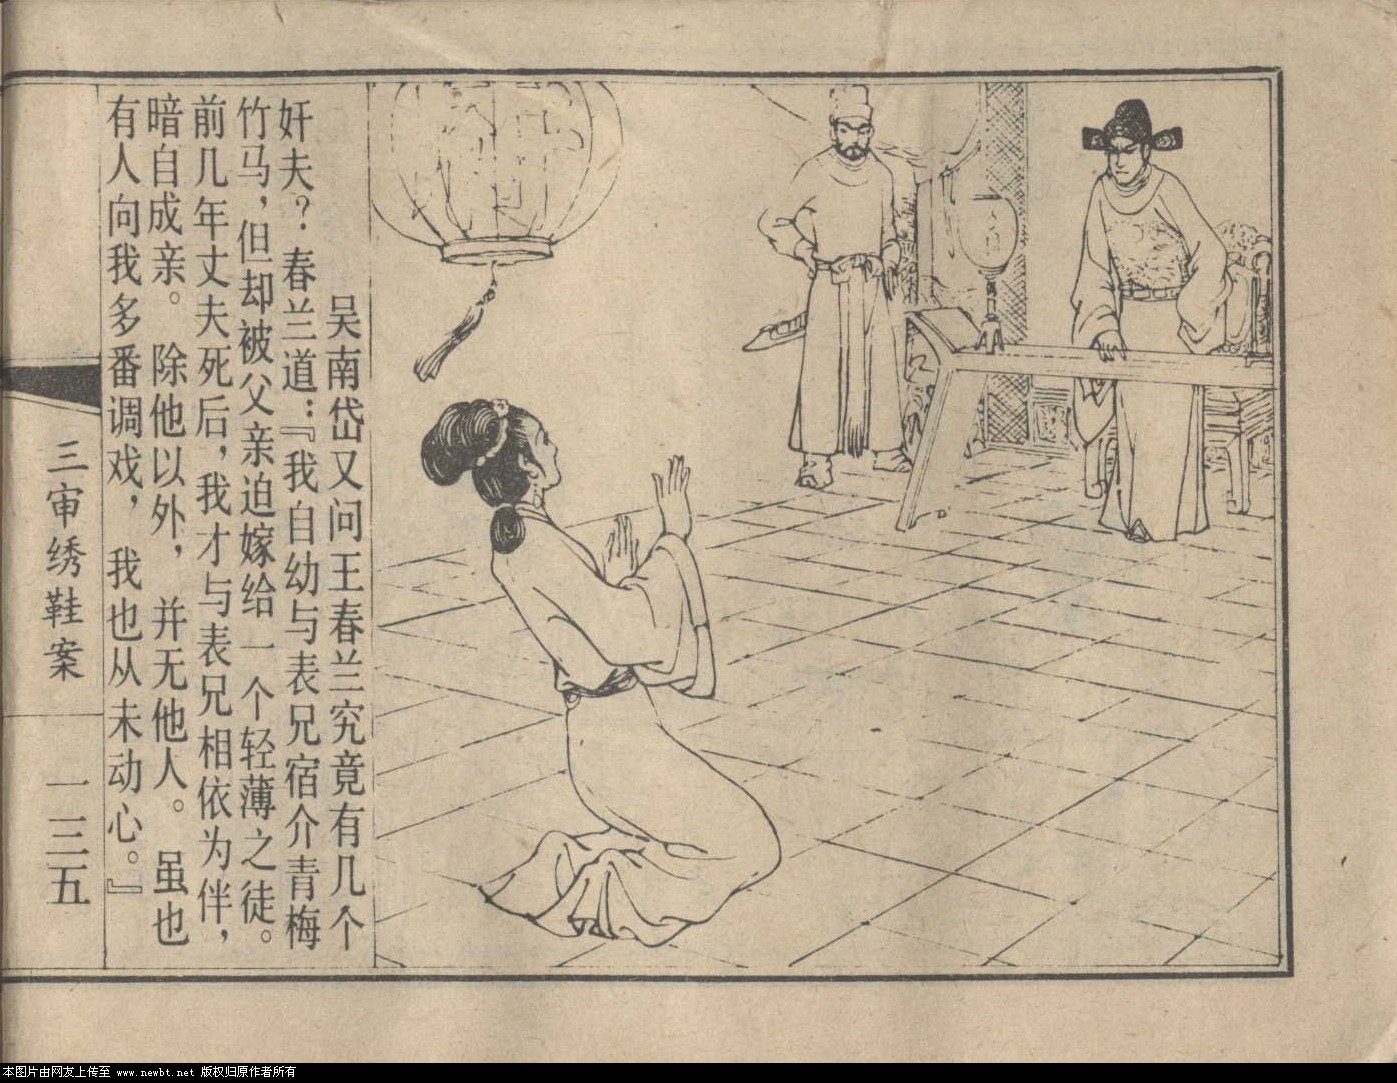 吴南岱又问王春兰究竟有几个
奸夫？春兰道：『我自幼与表兄宿介青梅
竹马，但却被父亲迫嫁给一个轻薄之徒。
前几年丈夫死后，我才与表兄相依为伴，
暗自成亲。除他以外，并无他人。虽也
有人向我多番调戏，我也从未动心。』
三审绣鞋案
一三五
本图片由网友上传至 www.newbt.net 版权归原作者所有